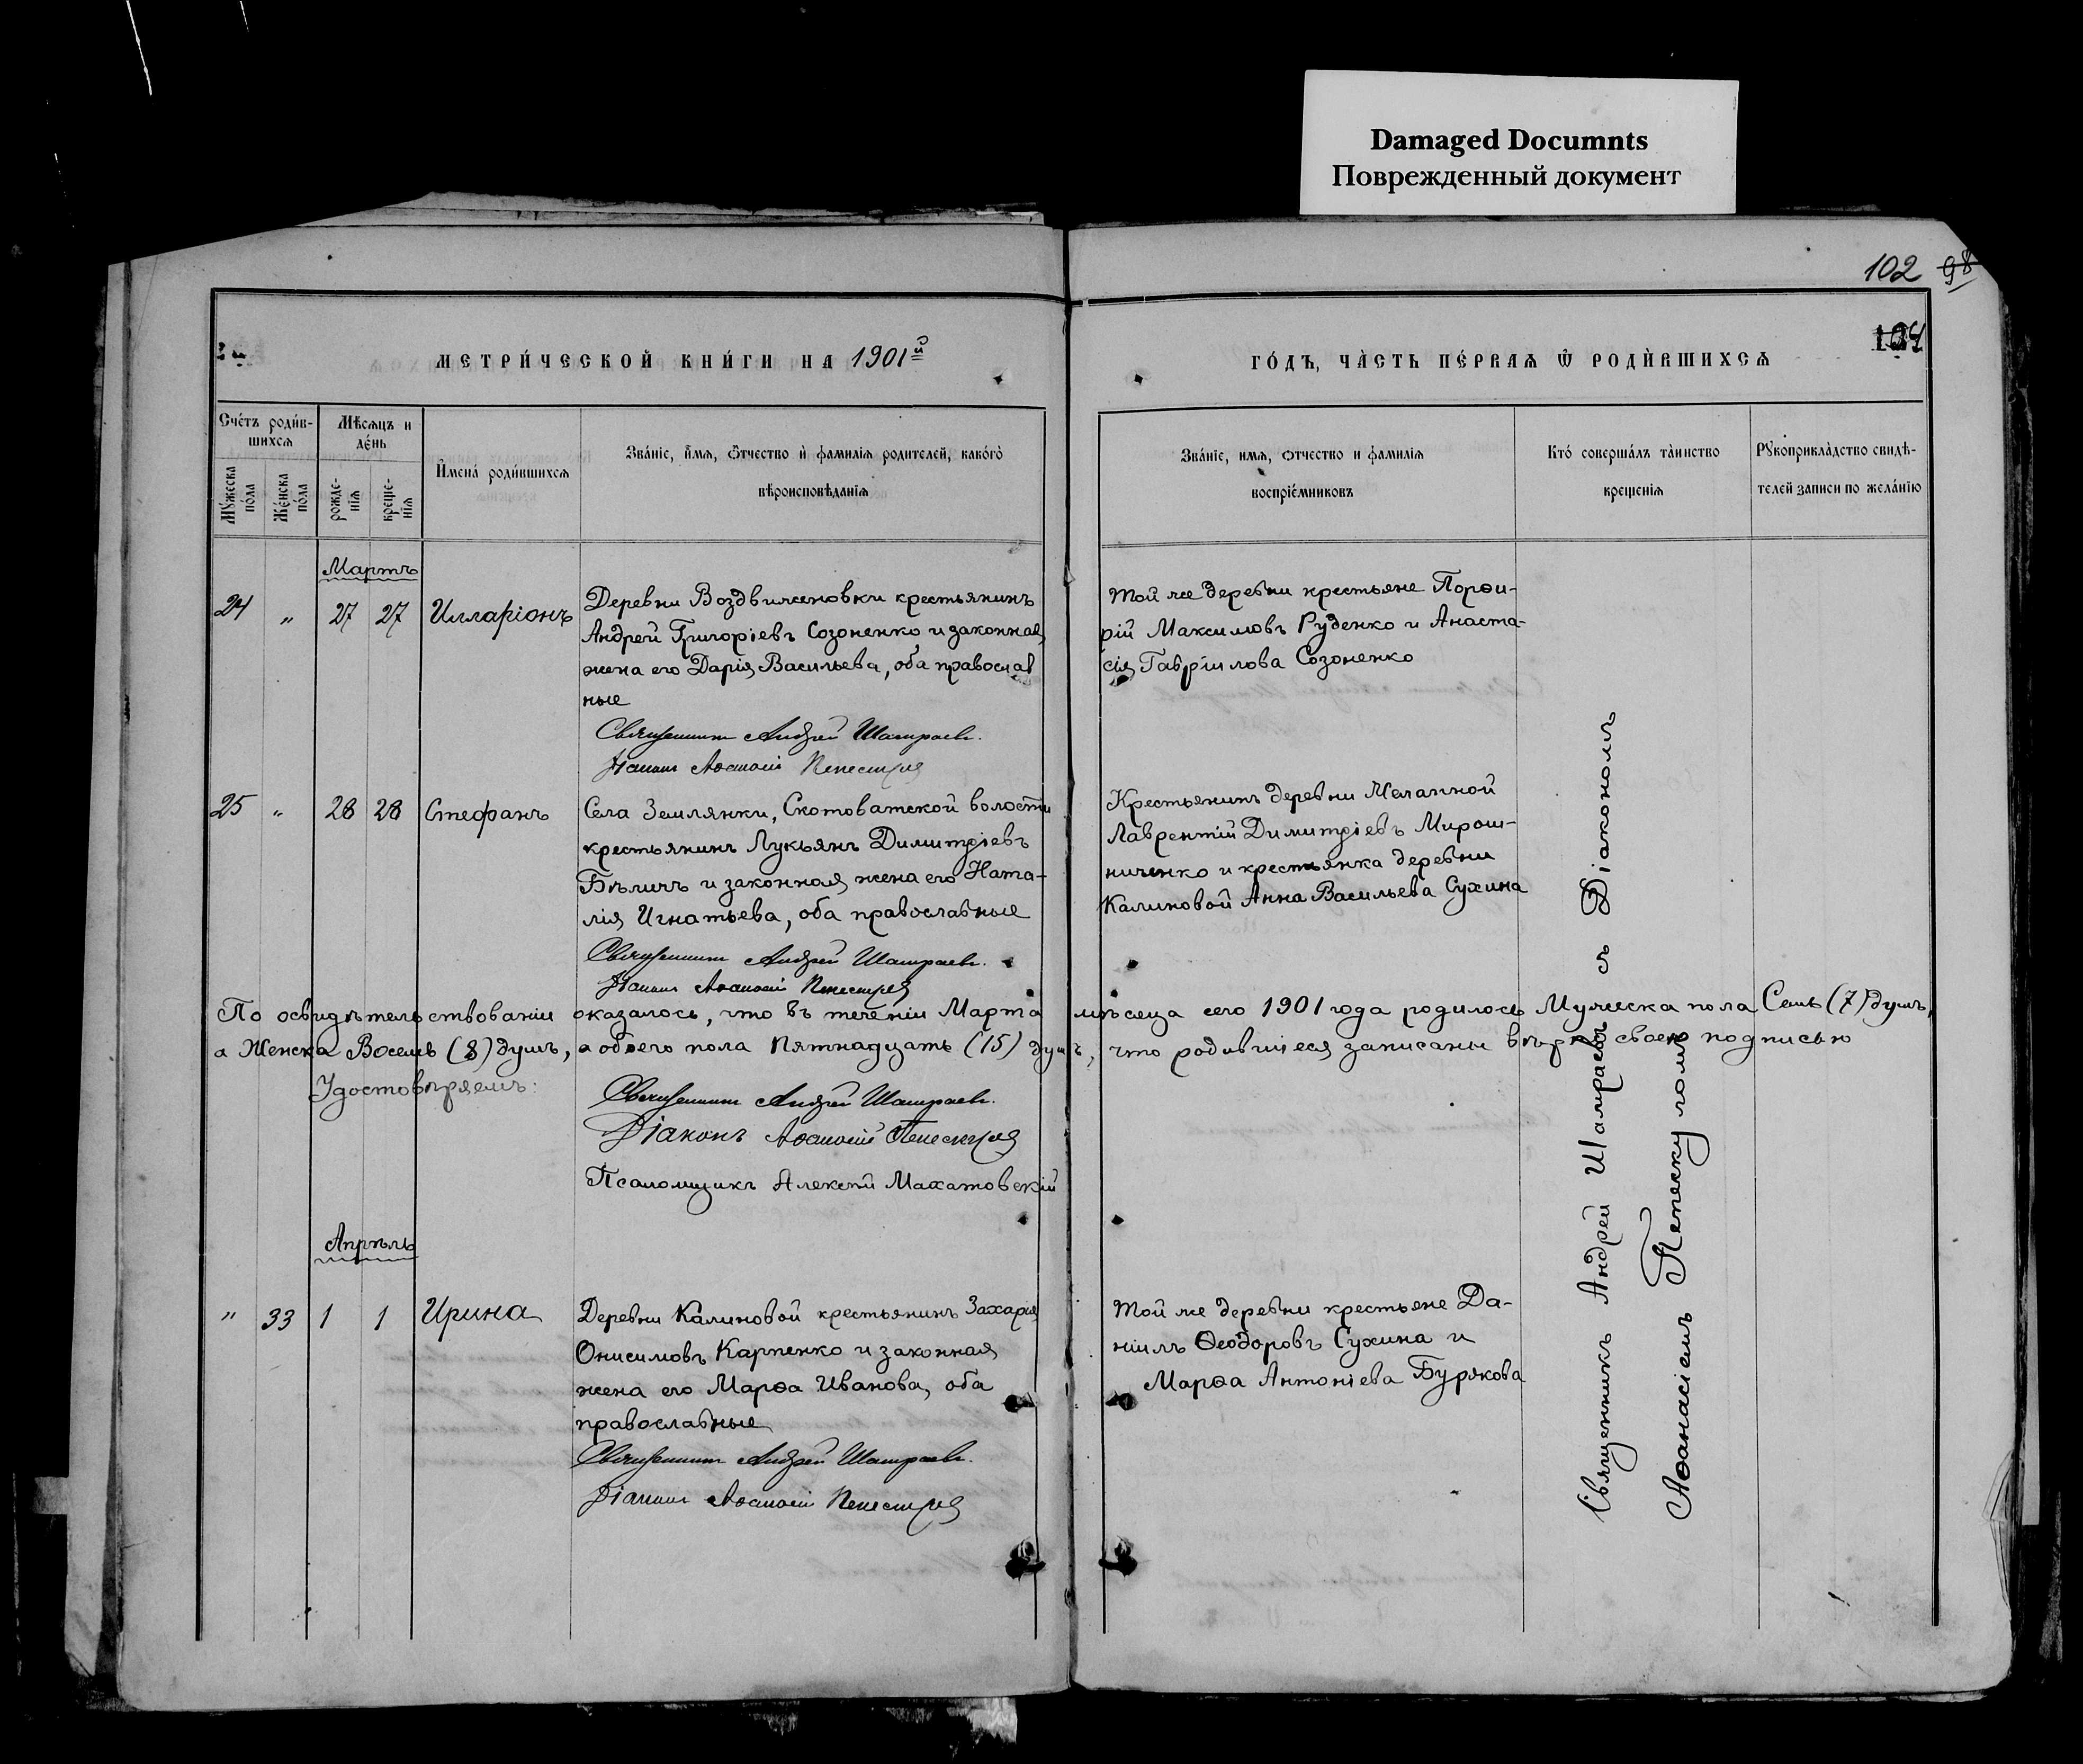 Damaged Documnts
Поврежденный документ
102 98
МЕТРИ́ЧЕСКОЙ КНИ́ГИ НА 1901й
ГО́ДЪ, ЧА̀СТЬ ПЕ́РВАѦ Ѿ РОДЍВШИХСѦ
Сче́тъ роди́в-
шихсѧ
Мꙋ́жеска
по́ла
Же́нска
по́ла
Мѣ́сѧцъ и
де́нь
рожде-
нїѧ
креще-
нїѧ
И҆мена́ роди́вшихсѧ
Зва́нїе, и҆́мѧ, ѻ҆́тчество и҆ фамилїѧ родителей, како́гѡ
вѣроисповѣ́данїѧ
Зва́нїе, имѧ, ѻтчество и фамилїѧ
воспрїе́мниковъ
Кто́ соверша́лъ та̀инство
креще́нїѧ
Рꙋкоприкла̀дство свидѣ́-
телей записи по жела́нїю
Мартъ
24 " 27 27 Илларіонъ
Деревни Воздвиженовки крестьянинъ
Андрей Григоріевъ Созоненко и законная
жена его Дарія Васильева, оба православ
ные
Священникъ Андрей Шапраевъ.
Діаконъ Аѳанасій
Той же деревни крестьяне Порѳи-
рій Максимовъ Руденко и Анаста-
сія Гавріилова Созоненко
25 " 28 28 Стефанъ
Села Землянки, Скотоватской волости
крестьянинъ Лукьянъ Димитріевъ
Бѣличъ и законная жена его Ната-
лія Игнатьева, оба православные
Священникъ Андрей Шапраевъ.
Діаконъ Аѳанасій
Крестьянинъ деревни
Лаврентій Димитріевъ Мирош-
ниченко и крестьянка деревни
Калиновой Анна Васильева Сухина
По освидѣтельствованіи оказалось, что въ теченіи Марта мѣсяца сего 1901 года родилось Мужеска пола Семь (7) душъ,
а Женска Восемь (8) душъ, а обоего пола Пятнадцать (15) душъ, что родившіеся записаны вѣрно своею подписью
Удостовѣряемъ:
Священникъ Андрей Шапраевъ.
Діаконъ Аѳанасій
Псаломщикъ Алексѣй Махатовскій
Апрѣль
" 33 1 1 Ирина
Деревни Калиновой крестьянинъ Захарія
Онисимовъ Карпенко и законная
жена его Марѳа Иванова, оба
православные
Священникъ Андрей Шапраевъ.
Діаконъ Аѳанасій
Той же деревни крестьяне Да-
ніилъ Ѳеодоровъ Сухина и
Марѳа Антоніева Бурякова
Священникъ Андрей Шапраевъ съ Діакономъ
Аѳанасіемъ